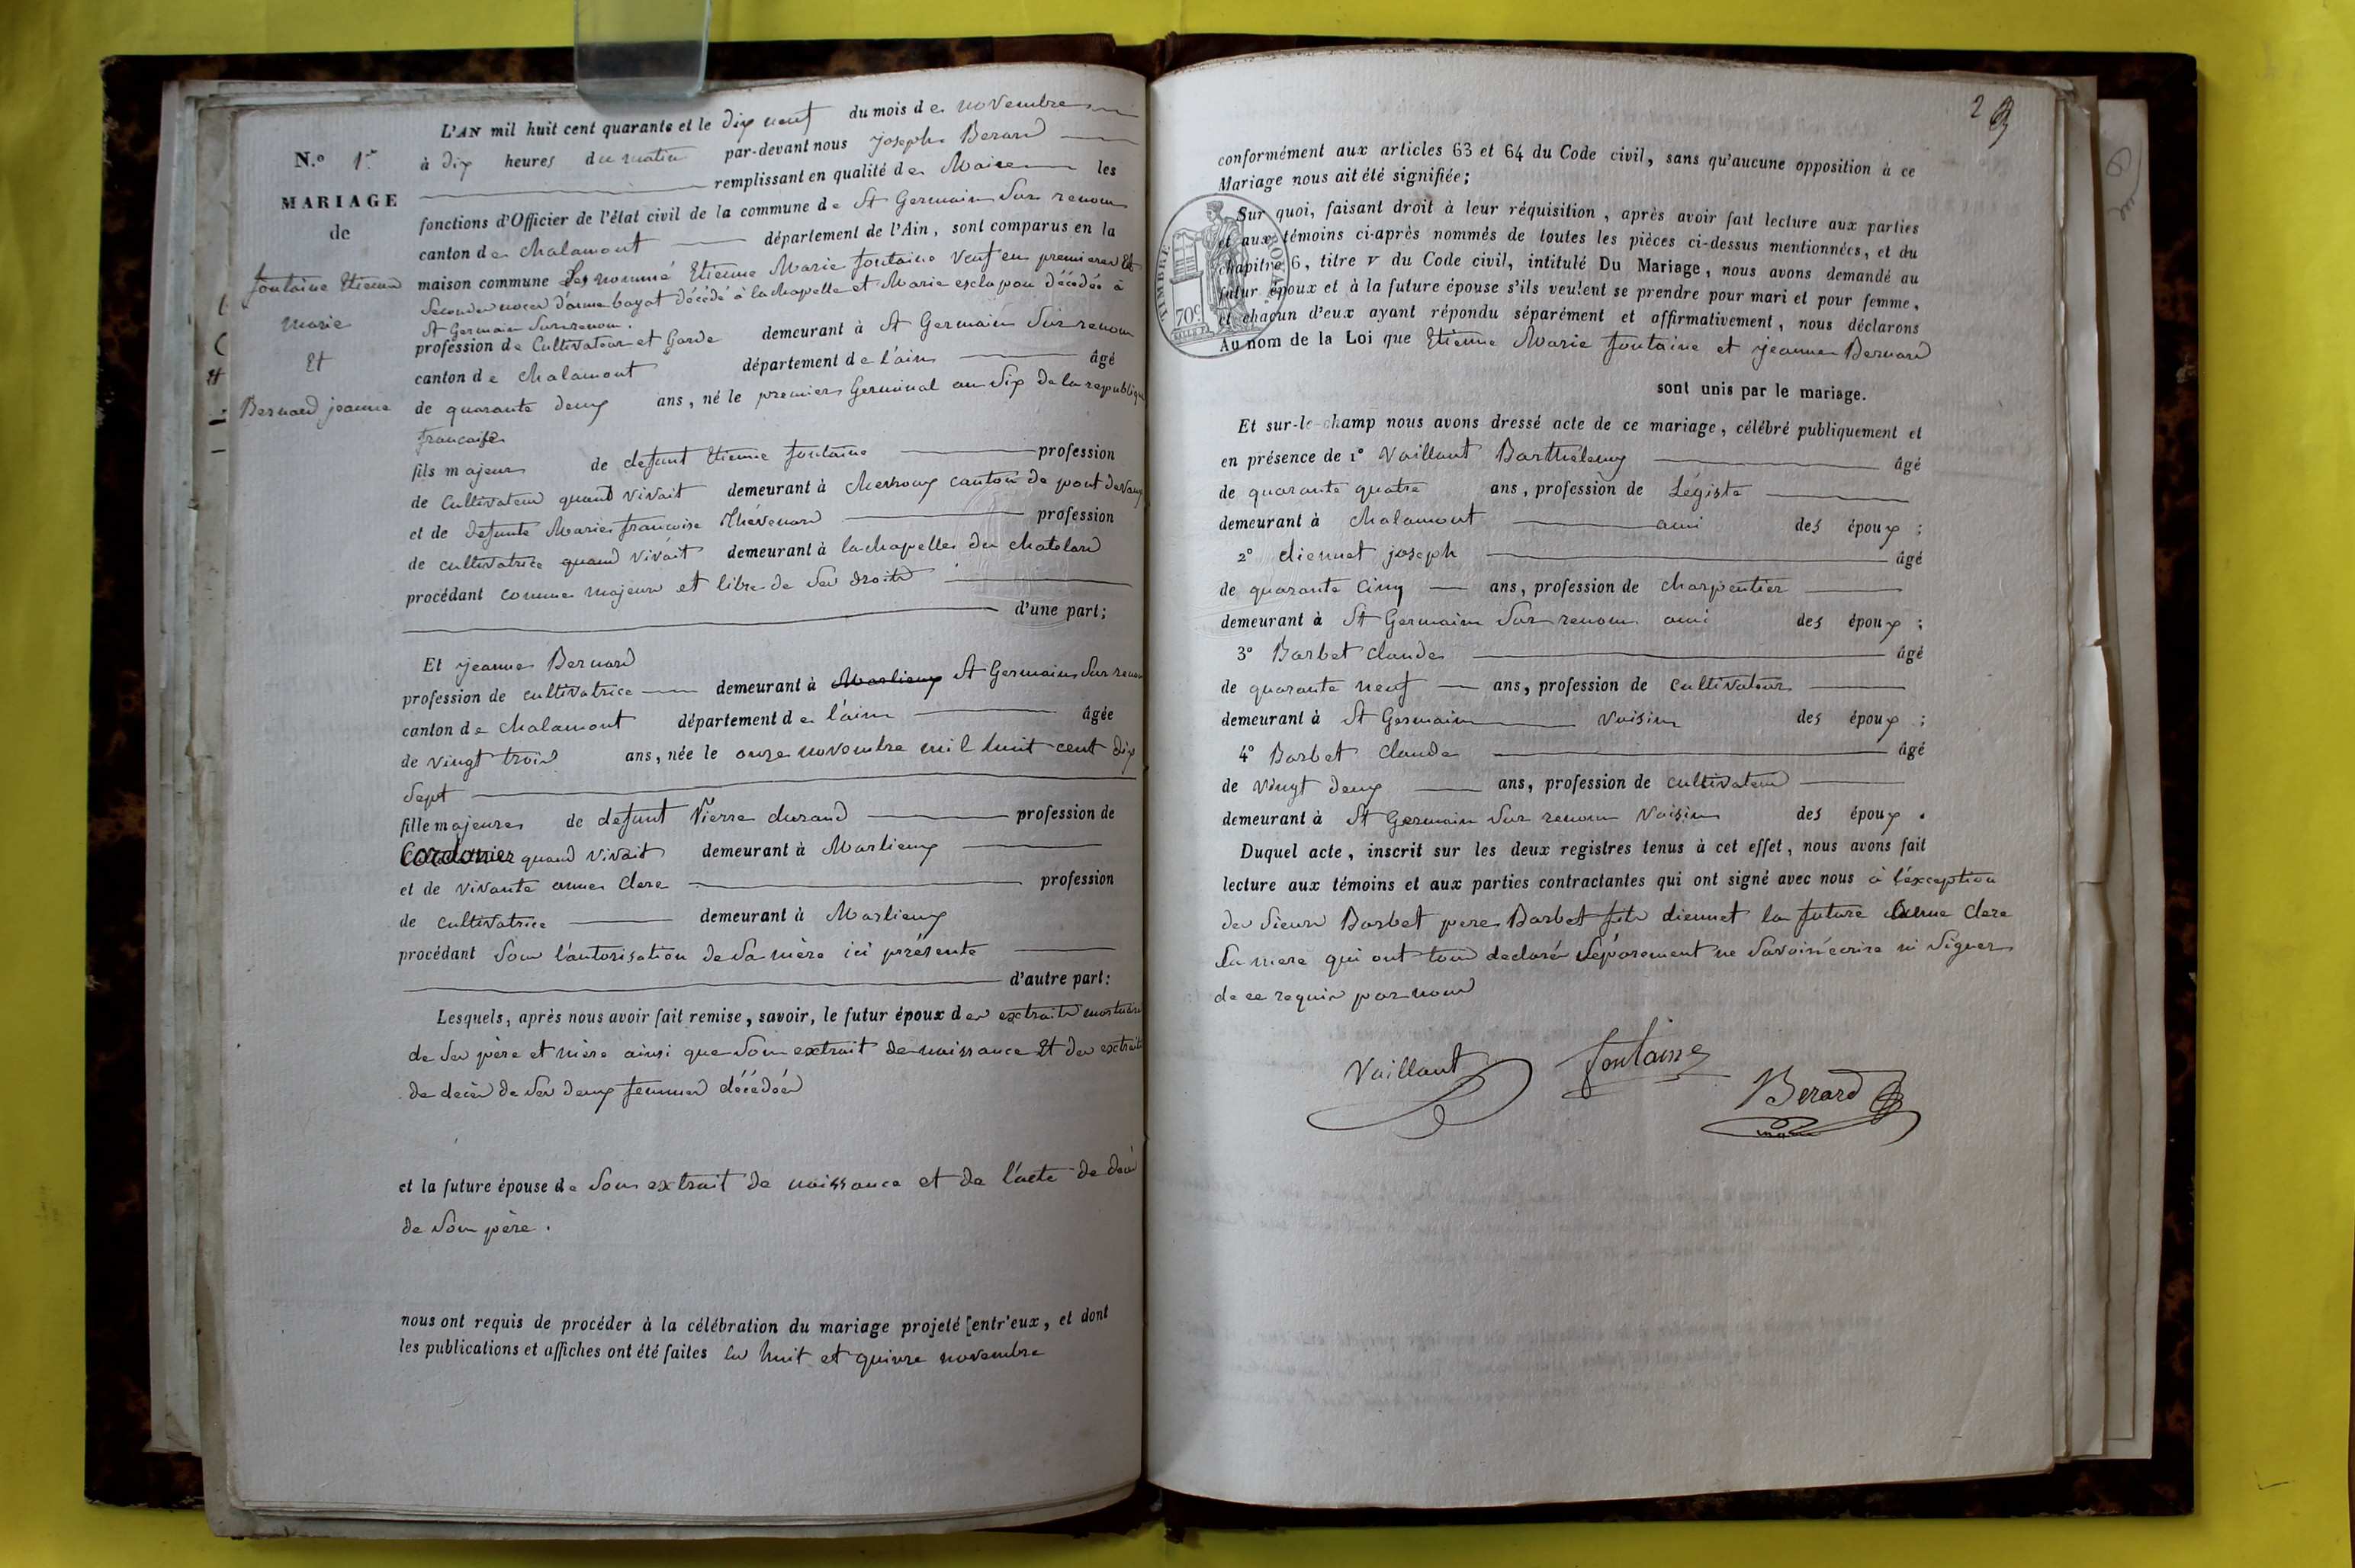 L'AN mil huit cent quarante et le dix neuf du mois de novembre
N.° 1er
à dix heures du matin par-devant nous joseph Berard
remplissant en qualité de Maire les
MARIAGE
de
fontaine Etienne
marie
Et
Bernard jeanne
fonctions d'Officier de l'état civil de la commune de St Germain Sur renom
canton de chalamont département de l'Ain, sont comparus en la
maison commune Les nommé Etienne Marie fontaine Veuf en premiere Et
Seconde noces d'anne bayat décédé à la chapelle et Marie esclapon décédée à
St Germain Sur renom.
profession de Cultivateur et Garde demeurant à St Germain Sur renom
canton de chalamont département de l'ain âgé
de quarante deux ans, né le premier Germinal an dix de la republique
francaise
fils majeur de defunt Etienne fontaine profession
de Cultivateur quand vivait demeurant à canton de pont de vaux
et de defunte Marie francoise Thévenard profession
de cultivatrice quand vivait demeurant à la chapelle du chatelard
procédant comme majeur et libre de ses droits
d'une part;
Et jeanne Bernard
profession de cultivatrice demeurant à Marlieux St Germain Sur renom
canton de chalamont département de l'ain âgée
de vingt trois ans, née le onze novembre mil huit cent dix
Sept
fille majeure de defunt Pierre durand profession de
Cordonier quand vivait demeurant à Marlieux
et de vivante anne Clere profession
de cultivatrice demeurant à Marlieux
procédant sous l'autorisation de sa mère ici présente
d'autre part:
Lesquels, après nous avoir fait remise, savoir, le futur époux des extraits mortuaires
de ses père et mère ainsi que son extrait de naissance Et des extraits
de décès de ses deux femmes décédées
et la future épouse de son extrait de naissance et de l'acte de décès
de son père.
nous ont requis de procéder à la célébration du mariage projeté [entr'eux, et dont
les publications et affiches ont été faites les huit et quinze novembre
2
conformément aux articles 63 et 64 du Code civil, sans qu'aucune opposition à ce
Mariage nous ait été signifiée;
Sur quoi, faisant droit à leur réquisition, après avoir fait lecture aux parties
et aux témoins ci-après nommés de toutes les pièces ci-dessus mentionnées, et du
chapitre 6, titre v du Code civil, intitulé Du Mariage, nous avons demandé au
futur époux et à la future épouse s'ils veulent se prendre pour mari et pour femme,
et chacun d'eux ayant répondu séparément et affirmativement, nous déclarons
Au nom de la Loi que Etienne Marie fontaine et jeanne Bernard
TIMBRE ROYAL
70c
sont unis par le mariage.
Et sur-le-champ nous avons dressé acte de ce mariage, célébré publiquement et
en présence de 1° Vaillant Barthélemy âgé
de quarante quatre ans, profession de Légiste
demeurant à chalamont ami des époux;
2° diennet joseph âgé
de quarante cinq ans, profession de charpentier
demeurant à St Germain Sur renom ami des époux;
3° Barbet claude âgé
de quarante neuf ans, profession de cultivateur
demeurant à St Germain Voisin des époux;
4° Barbet Claude âgé
de vingt deux ans, profession de cultivateur
demeurant à St Germain Sur renom Voisin des époux.
Duquel acte, inscrit sur les deux registres tenus à cet effet, nous avons fait
lecture aux témoins et aux parties contractantes qui ont signé avec nous à l'exception
des sieurs Barbet pere Barbet fils diennet la future Anne Clere
sa mere qui ont tous declaré séparement ne savoir écrire ni signer
de ce requis par nous
Vaillant fontaine
Berard